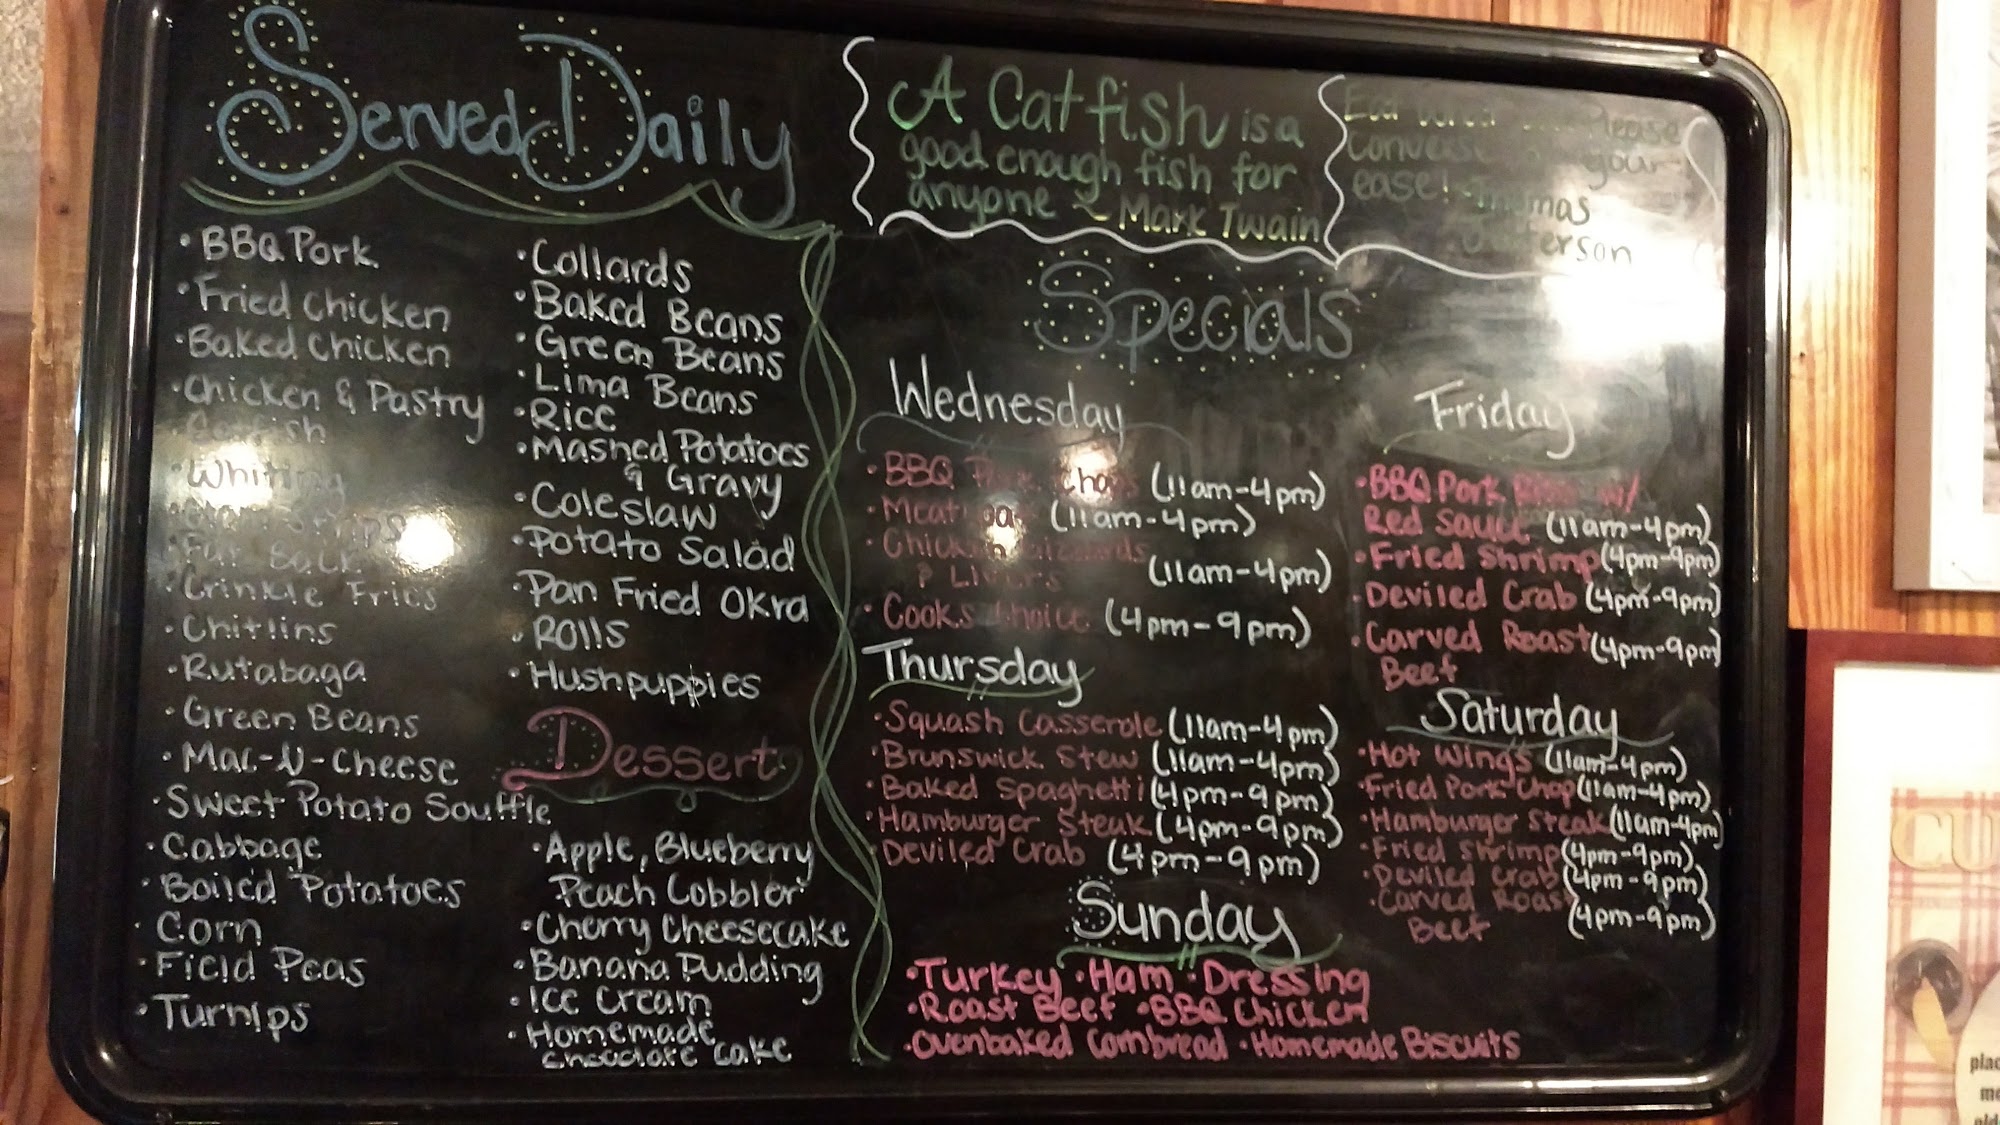 Served Daily
• BBQ Pork
• Fried Chicken
• Baked Chicken
• Chicken & Pastry
Catfish
• Whiting
Strips
Fat Back
Crinkle Fries
• Chitlins
• Rutabaga
• Green Beans
• Mac-N-Cheese
• Sweet Potato Souffle
• Cabbage
• Boiled Potatoes
• Corn
• Field Peas
• Turnips
• Collards
• Baked Beans
• Green Beans
• Lima Beans
• Rice
• Mashed Potatoes
& Gravy
• Coleslaw
• Potato Salad
• Pan Fried Okra
• Rolls
• Hushpuppies
Dessert
• Apple, Blueberry
Peach Cobbler
• Cherry Cheesecake
• Banana Pudding
• Ice Cream
• Homemade
Chocolate Cake
A Catfish is a
good enough fish for
anyone ~ Mark Twain
Eat Please
Converse your
ease! ~Thomas
Jefferson
Specials
Wednesday
• BBQ Pork Chops (11am-4pm)
• Meatloaf (11am-4pm)
• Chicken Gizzards
& Livers (11am-4pm)
• Cooks Choice (4pm-9pm)
Thursday
• Squash Casserole (11am-4pm)
• Brunswick Stew (11am-4pm)
• Baked Spaghetti (4pm-9pm)
• Hamburger Steak (4pm-9pm)
• Deviled Crab (4pm-9pm)
Friday
• BBQ Pork Ribs w/
Red Sauce (11am-4pm)
• Fried Shrimp (4pm-9pm)
• Deviled Crab (4pm-9pm)
• Carved Roast (4pm-9pm)
Beef
Saturday
• Hot Wings (11am-4pm)
• Fried Pork Chop (11am-4pm)
• Hamburger Steak (11am-4pm)
• Fried Shrimp (4pm-9pm)
• Deviled Crab (4pm-9pm)
• Carved Roast
Beef (4pm-9pm)
Sunday
• Turkey • Ham • Dressing
• Roast Beef • BBQ Chicken
• Ovenbaked Cornbread • Homemade Biscuits
CU
plac